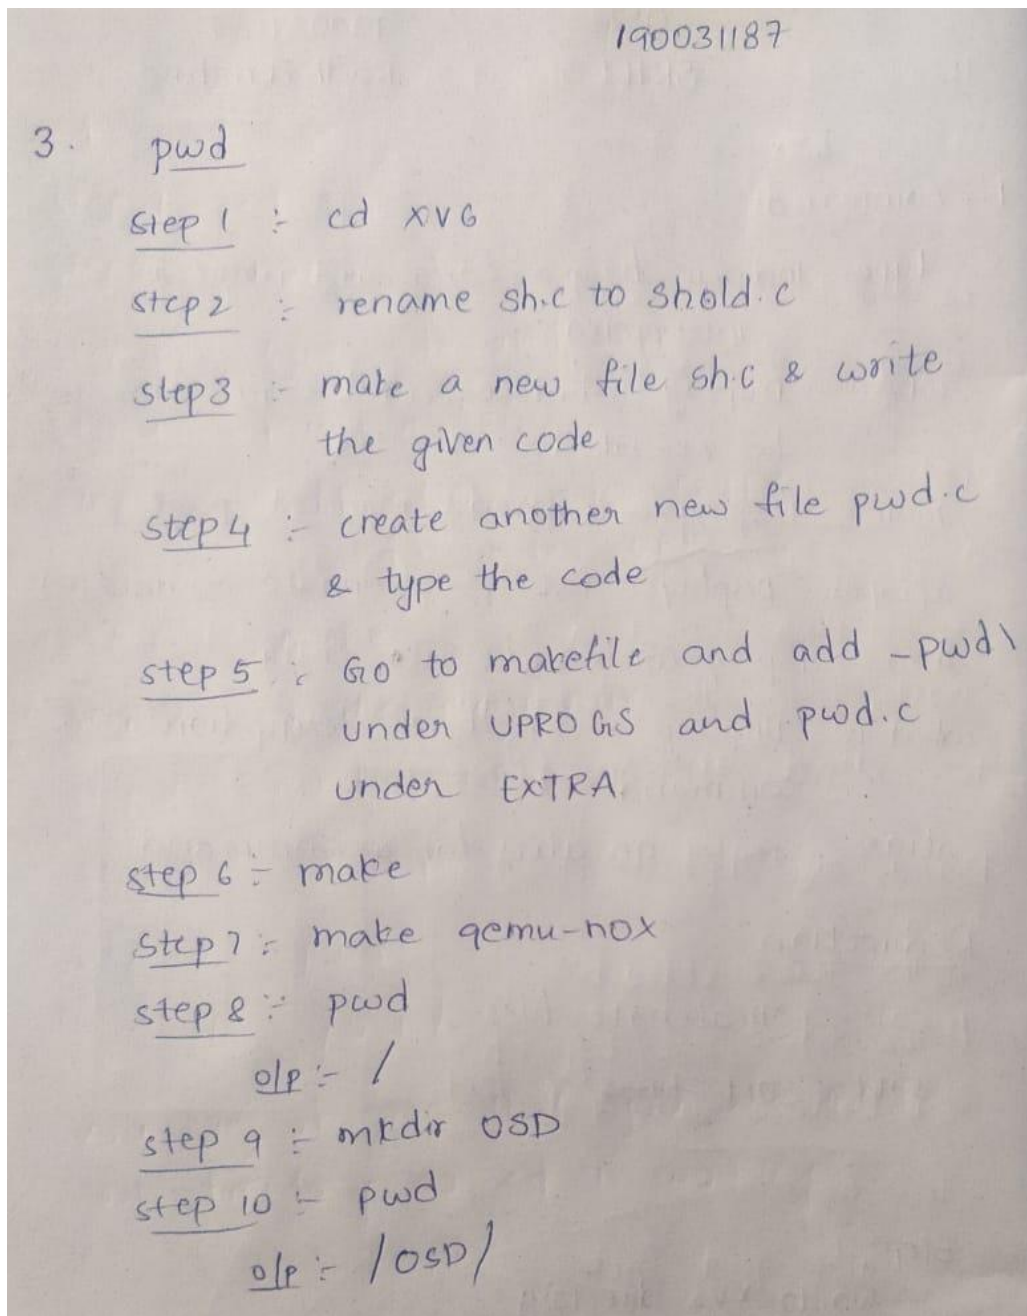 190031187
3. pwd
Step 1 :- cd xv6
step 2 :- rename sh.c to shold.c
step 3 :- make a new file sh.c & write
the given code
step 4 :- create another new file pwd.c
& type the code
step 5 :- Go to makefile and add _pwd\
under UPROGS and pwd.c
under EXTRA.
step 6 :- make
step 7 :- make qemu-nox
step 8 :- pwd
o/p :- /
step 9 :- mkdir OSD
step 10 :- pwd
o/p :- /OSD/